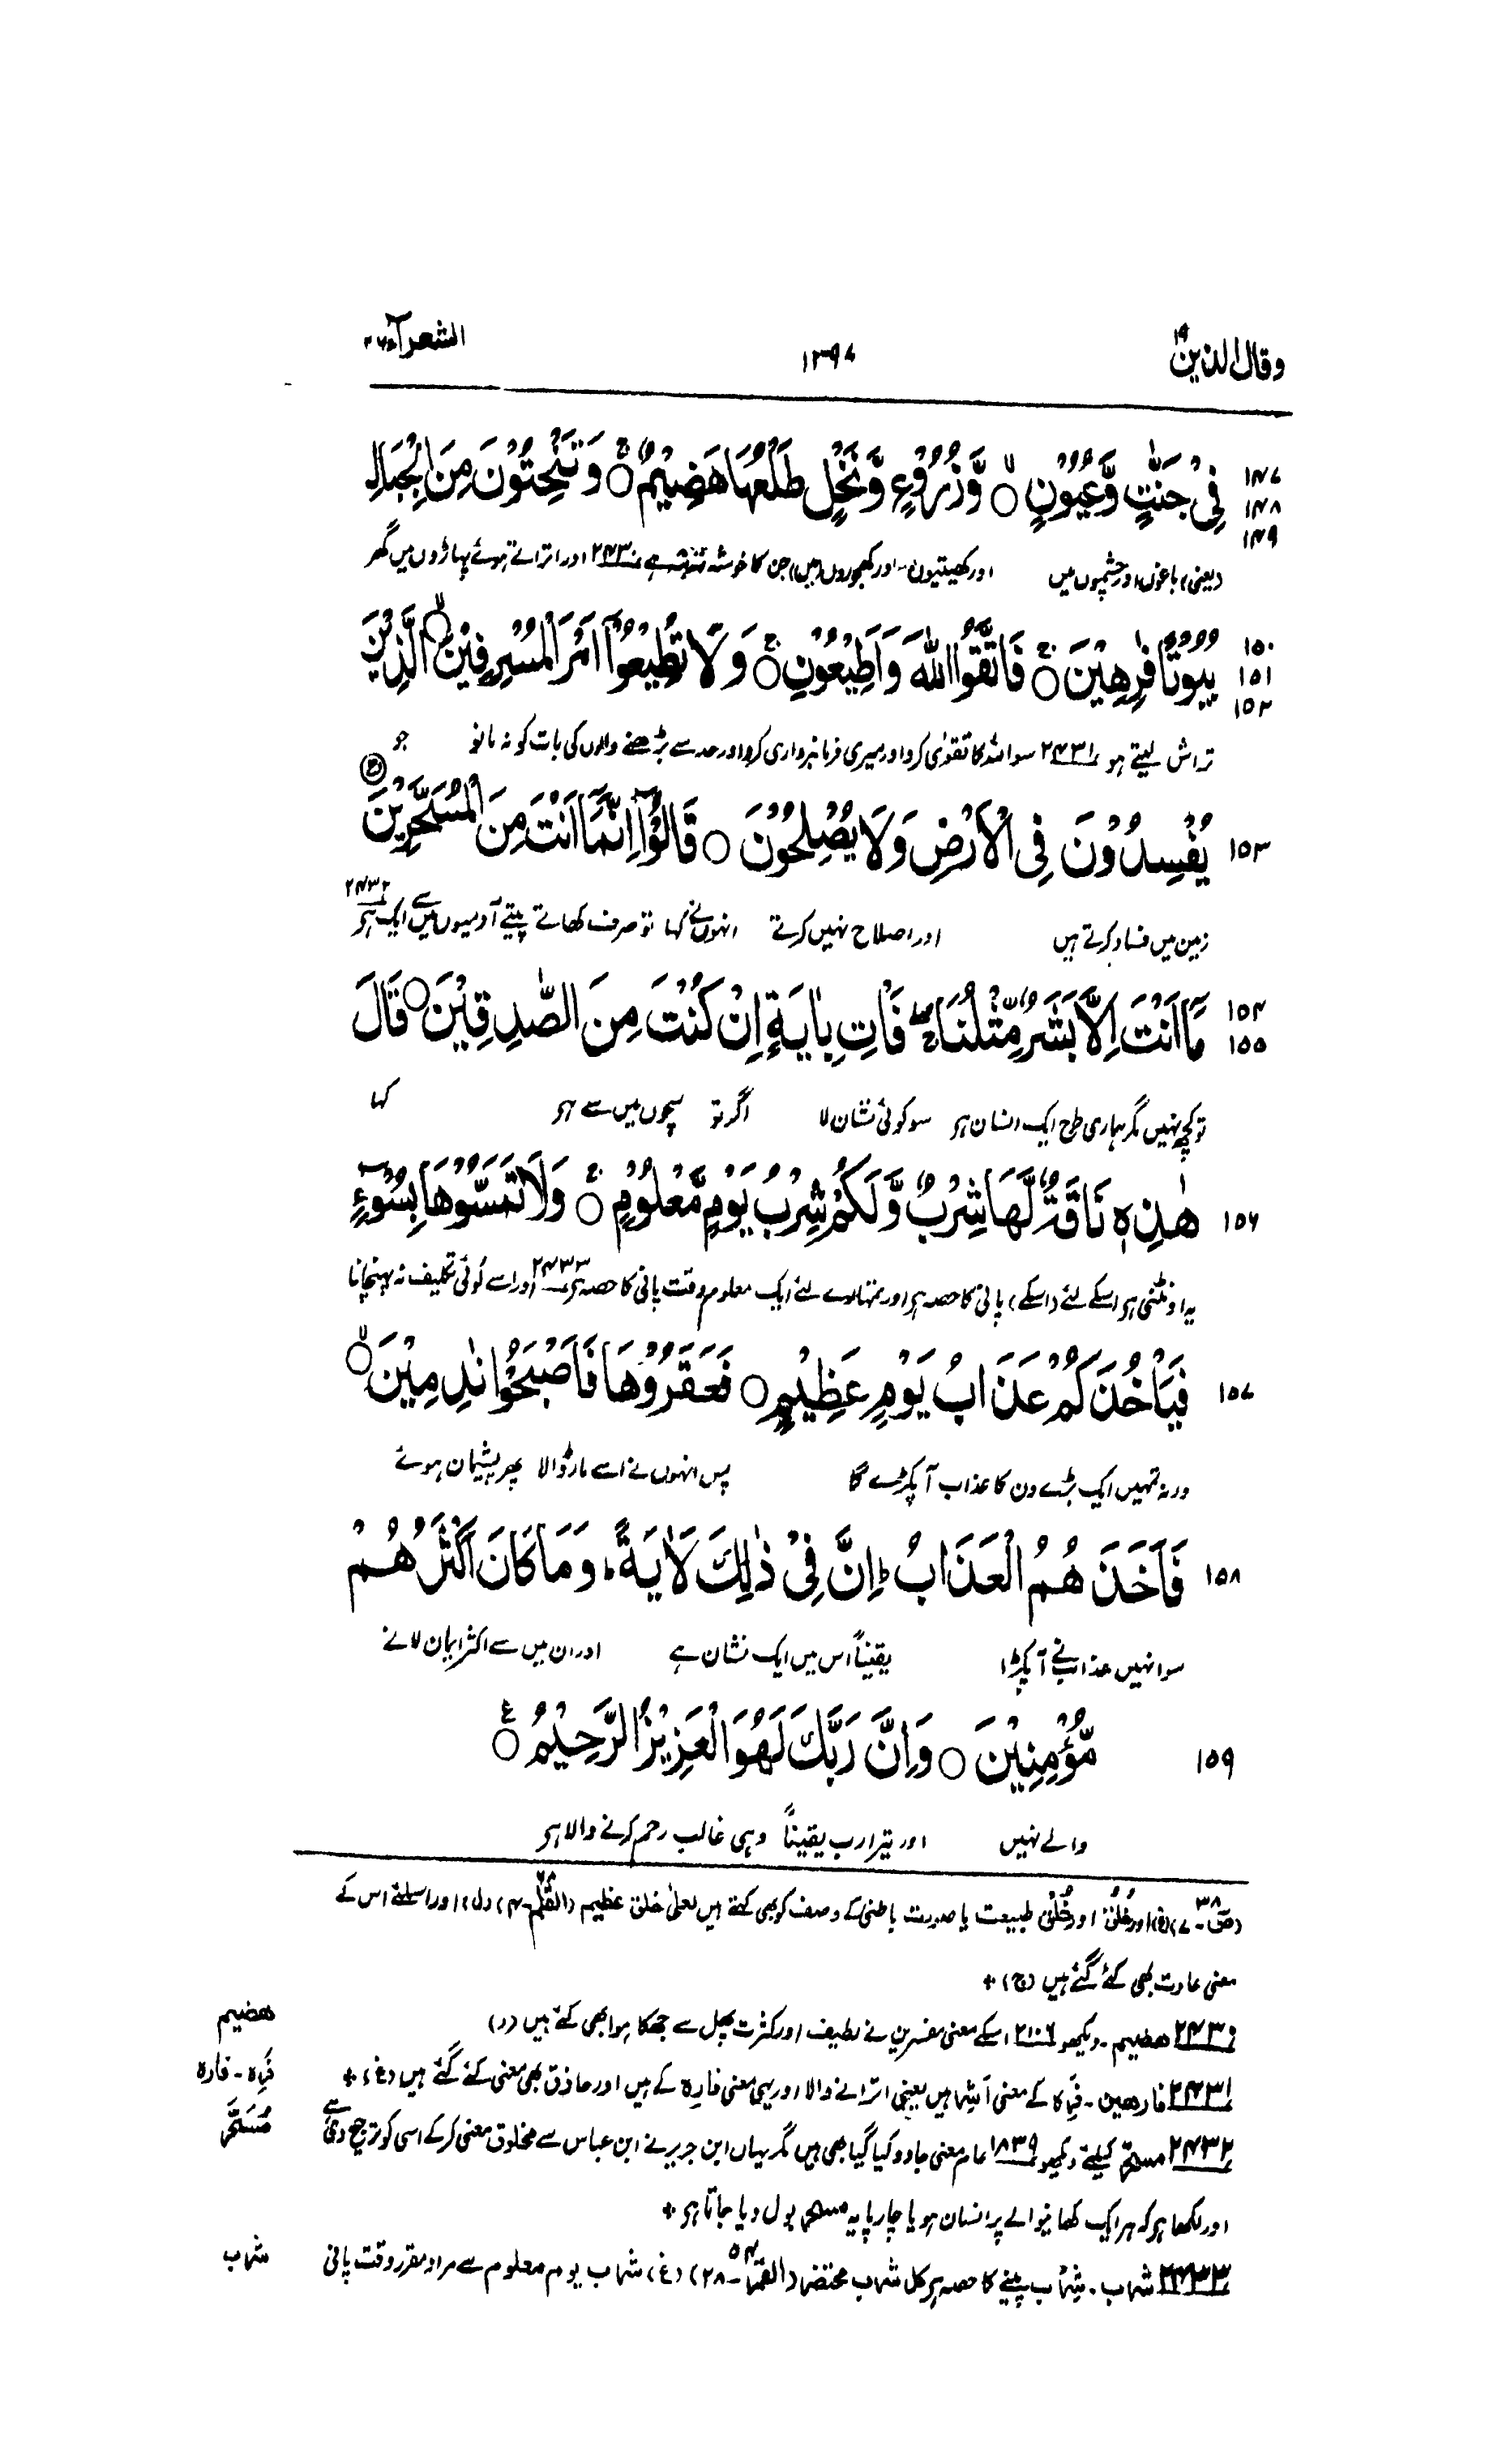 وقال الذين ۱۹
۱۳۹۷
الشعرآء ۲۶
۱۴۷ ۱۴۸ ۱۴۹
فِيْ جَنّٰتٍ وَّعُيُوْنٍ ۙ وَّزُرُوْعٍ وَّنَخْلٍ طَلْعُهَا هَضِيْمٌ ۚ وَتَنْحِتُوْنَ مِنَ الْجِبَالِ
(یعنی) باغوں اور چشموں میں اور کھیتیوں اور کھجوروں (میں) جن کا خوشہ ہے ۲۴۳۰ اور اتراتے ہوئے پہاڑوں میں گھر
۱۵۰ ۱۵۱ ۱۵۲
بُيُوْتًا فٰرِهِيْنَ ۚ فَاتَّقُوا اللّٰهَ وَاَطِيْعُوْنِ ۚ وَلَا تُطِيْعُوْٓا اَمْرَ الْمُسْرِفِيْنَ ۙ الَّذِيْنَ
تراش لیتے ہو ۲۴۳۱ سو اللہ کا تقویٰ کرو اور میری فرمانبرداری کرو اور حد سے بڑھنے والوں کی بات کو نہ مانو جو
۱۵۳
يُفْسِدُوْنَ فِي الْاَرْضِ وَلَا يُصْلِحُوْنَ ○ قَالُوْٓا اِنَّمَآ اَنْتَ مِنَ الْمُسَحَّرِيْنَ
زمین میں فساد کرتے ہیں اور اصلاح نہیں کرتے انہوں نے کہا تو صرف کھاتے پیتے آدمیوں میں سے ایک ہی ۲۴۳۲
۱۵۴ ۱۵۵
مَآ اَنْتَ اِلَّا بَشَرٌ مِّثْلُنَا ۖ فَاْتِ بِاٰيَةٍ اِنْ كُنْتَ مِنَ الصّٰدِقِيْنَ ○ قَالَ
تو کچھ نہیں مگر ہماری طرح ایک انسان ہی سو کوئی نشان لا اگر تو سچوں میں سے ہو کہا
۱۵۶
هٰذِهٖ نَاقَةٌ لَّهَا شِرْبٌ وَّلَكُمْ شِرْبُ يَوْمٍ مَّعْلُوْمٍ ۚ وَلَا تَمَسُّوْهَا بِسُوْٓءٍ
یہ اونٹنی ہی اسکے لئے (اسکے) پانی کا حصہ ہی اور تمہارے لئے ایک معلوم وقت پانی کا حصہ ہی ۲۴۳۳ اور اسے کوئی تکلیف نہ پہنچانا
۱۵۷
فَيَاْخُذَكُمْ عَذَابُ يَوْمٍ عَظِيْمٍ ○ فَعَقَرُوْهَا فَاَصْبَحُوْا نٰدِمِيْنَ ۙ
ورنہ تمہیں ایک بڑے دن کا عذاب آپکڑے گا پس انہوں نے اسے مارڈالا پھر پشیمان ہوئے
۱۵۸
فَاَخَذَهُمُ الْعَذَابُ ؕ اِنَّ فِيْ ذٰلِكَ لَاٰيَةً ؕ وَمَا كَانَ اَكْثَرُهُمْ
سو انہیں عذاب نے آپکڑا یقیناً اس میں ایک نشان ہے اور ان میں سے اکثر ایمان لانے
۱۵۹
مُّؤْمِنِيْنَ ○ وَاِنَّ رَبَّكَ لَهُوَ الْعَزِيْزُ الرَّحِيْمُ ○ ع
والے نہیں اور تیرا رب یقیناً وہی غالب رحم کرنے والا ہی
(ص۳۸-۷) (غ) اور خُلُقٌ اور خُلْقٌ طبیعت یا صورت باطنی کے وصف کو بھی کہتے ہیں لعلیٰ خلق عظیم (القلم-۴) (ل) اور اسلئے اس کے
معنی عادت بھی کئے گئے ہیں (ج) +
۲۴۳۰ هضیم - دیکھو ۲۱۰۶ اسکے معنی مفسرین نے لطیف اور کثرت پھل سے جھکا ہوا بھی کئے ہیں (ر)
هضیم
۲۴۳۱ فارهین - فَرِہ کے معنی اَشِر ہیں یعنی اترانے والا اور یہی معنی فارہ کے ہیں اور حاذق بھی معنی کئے گئے ہیں (غ) +
فَرِہ - فارہ
۲۴۳۲ مسحّر کیلئے دیکھو ۱۸۳۹ عام معنی جادو کیا گیا بھی ہیں مگر یہاں ابن جریر نے ابن عباس سے مخلوق معنی کرکے اسی کو ترجیح دی ہے
مُسَحَّر
اور لکھا ہی کہ ہر ایک کھانیوالے پر انسان ہو یا چارپایہ مسحر بول دیا جاتا ہی +
۲۴۳۳ شرب - شِرْب پینے کا حصہ ہی کل شرب محتضر (القمر ۵۴-۲۸) (غ) شرب یوم معلوم سے مراد مقرر وقت پانی
شرب